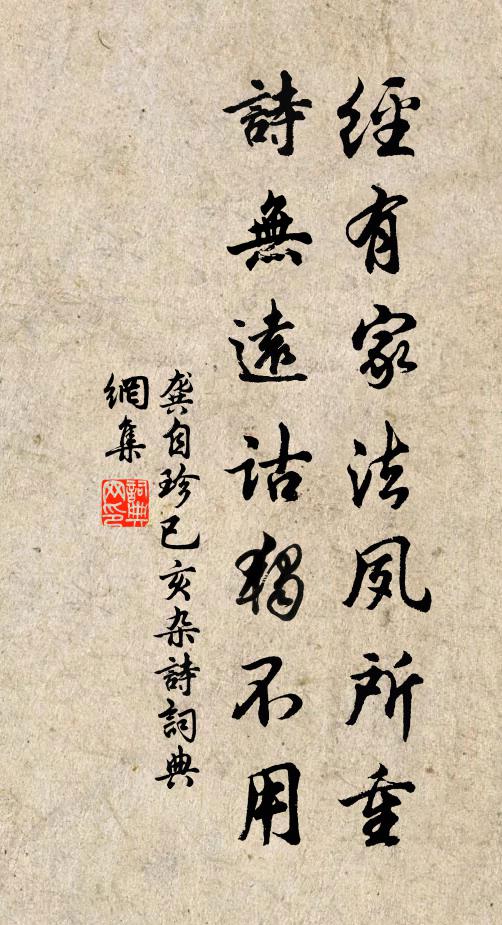 經有家法夙所重
詩無遠詁獨不用
龔自珍己亥杂詩詞典
網集
詞典
网印